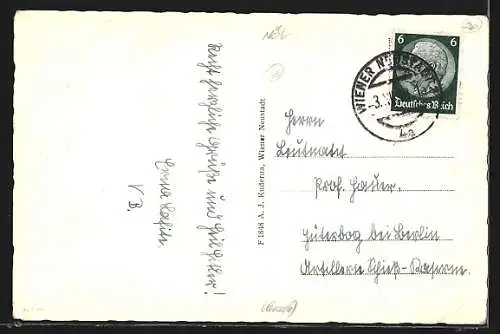 Recht herzliche Grüße und Heil Hitler!
Erna
V. B.
F 1848 A. J. Kuderna, Wiener Neustadt
6 6
Deutsches Reich
WIENER NEUSTADT
3.
4a
Herrn
Leutnant
Prof. Hauer.
Jüterbog bei Berlin
Artillerie Schieß-Kaserne.